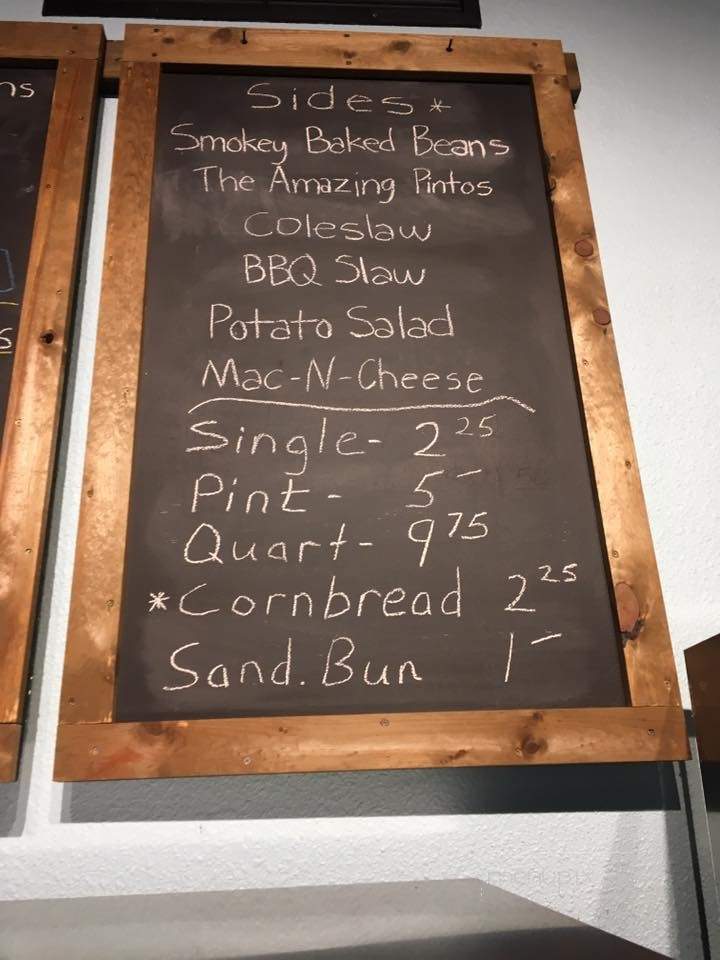 Sides *
Smokey Baked Beans
The Amazing Pintos
Coleslaw
BBQ Slaw
Potato Salad
Mac-N-Cheese
Single- 2 25
Pint - 5 -
Quart- 9 75
*Cornbread 2 25
Sand. Bun 1 -